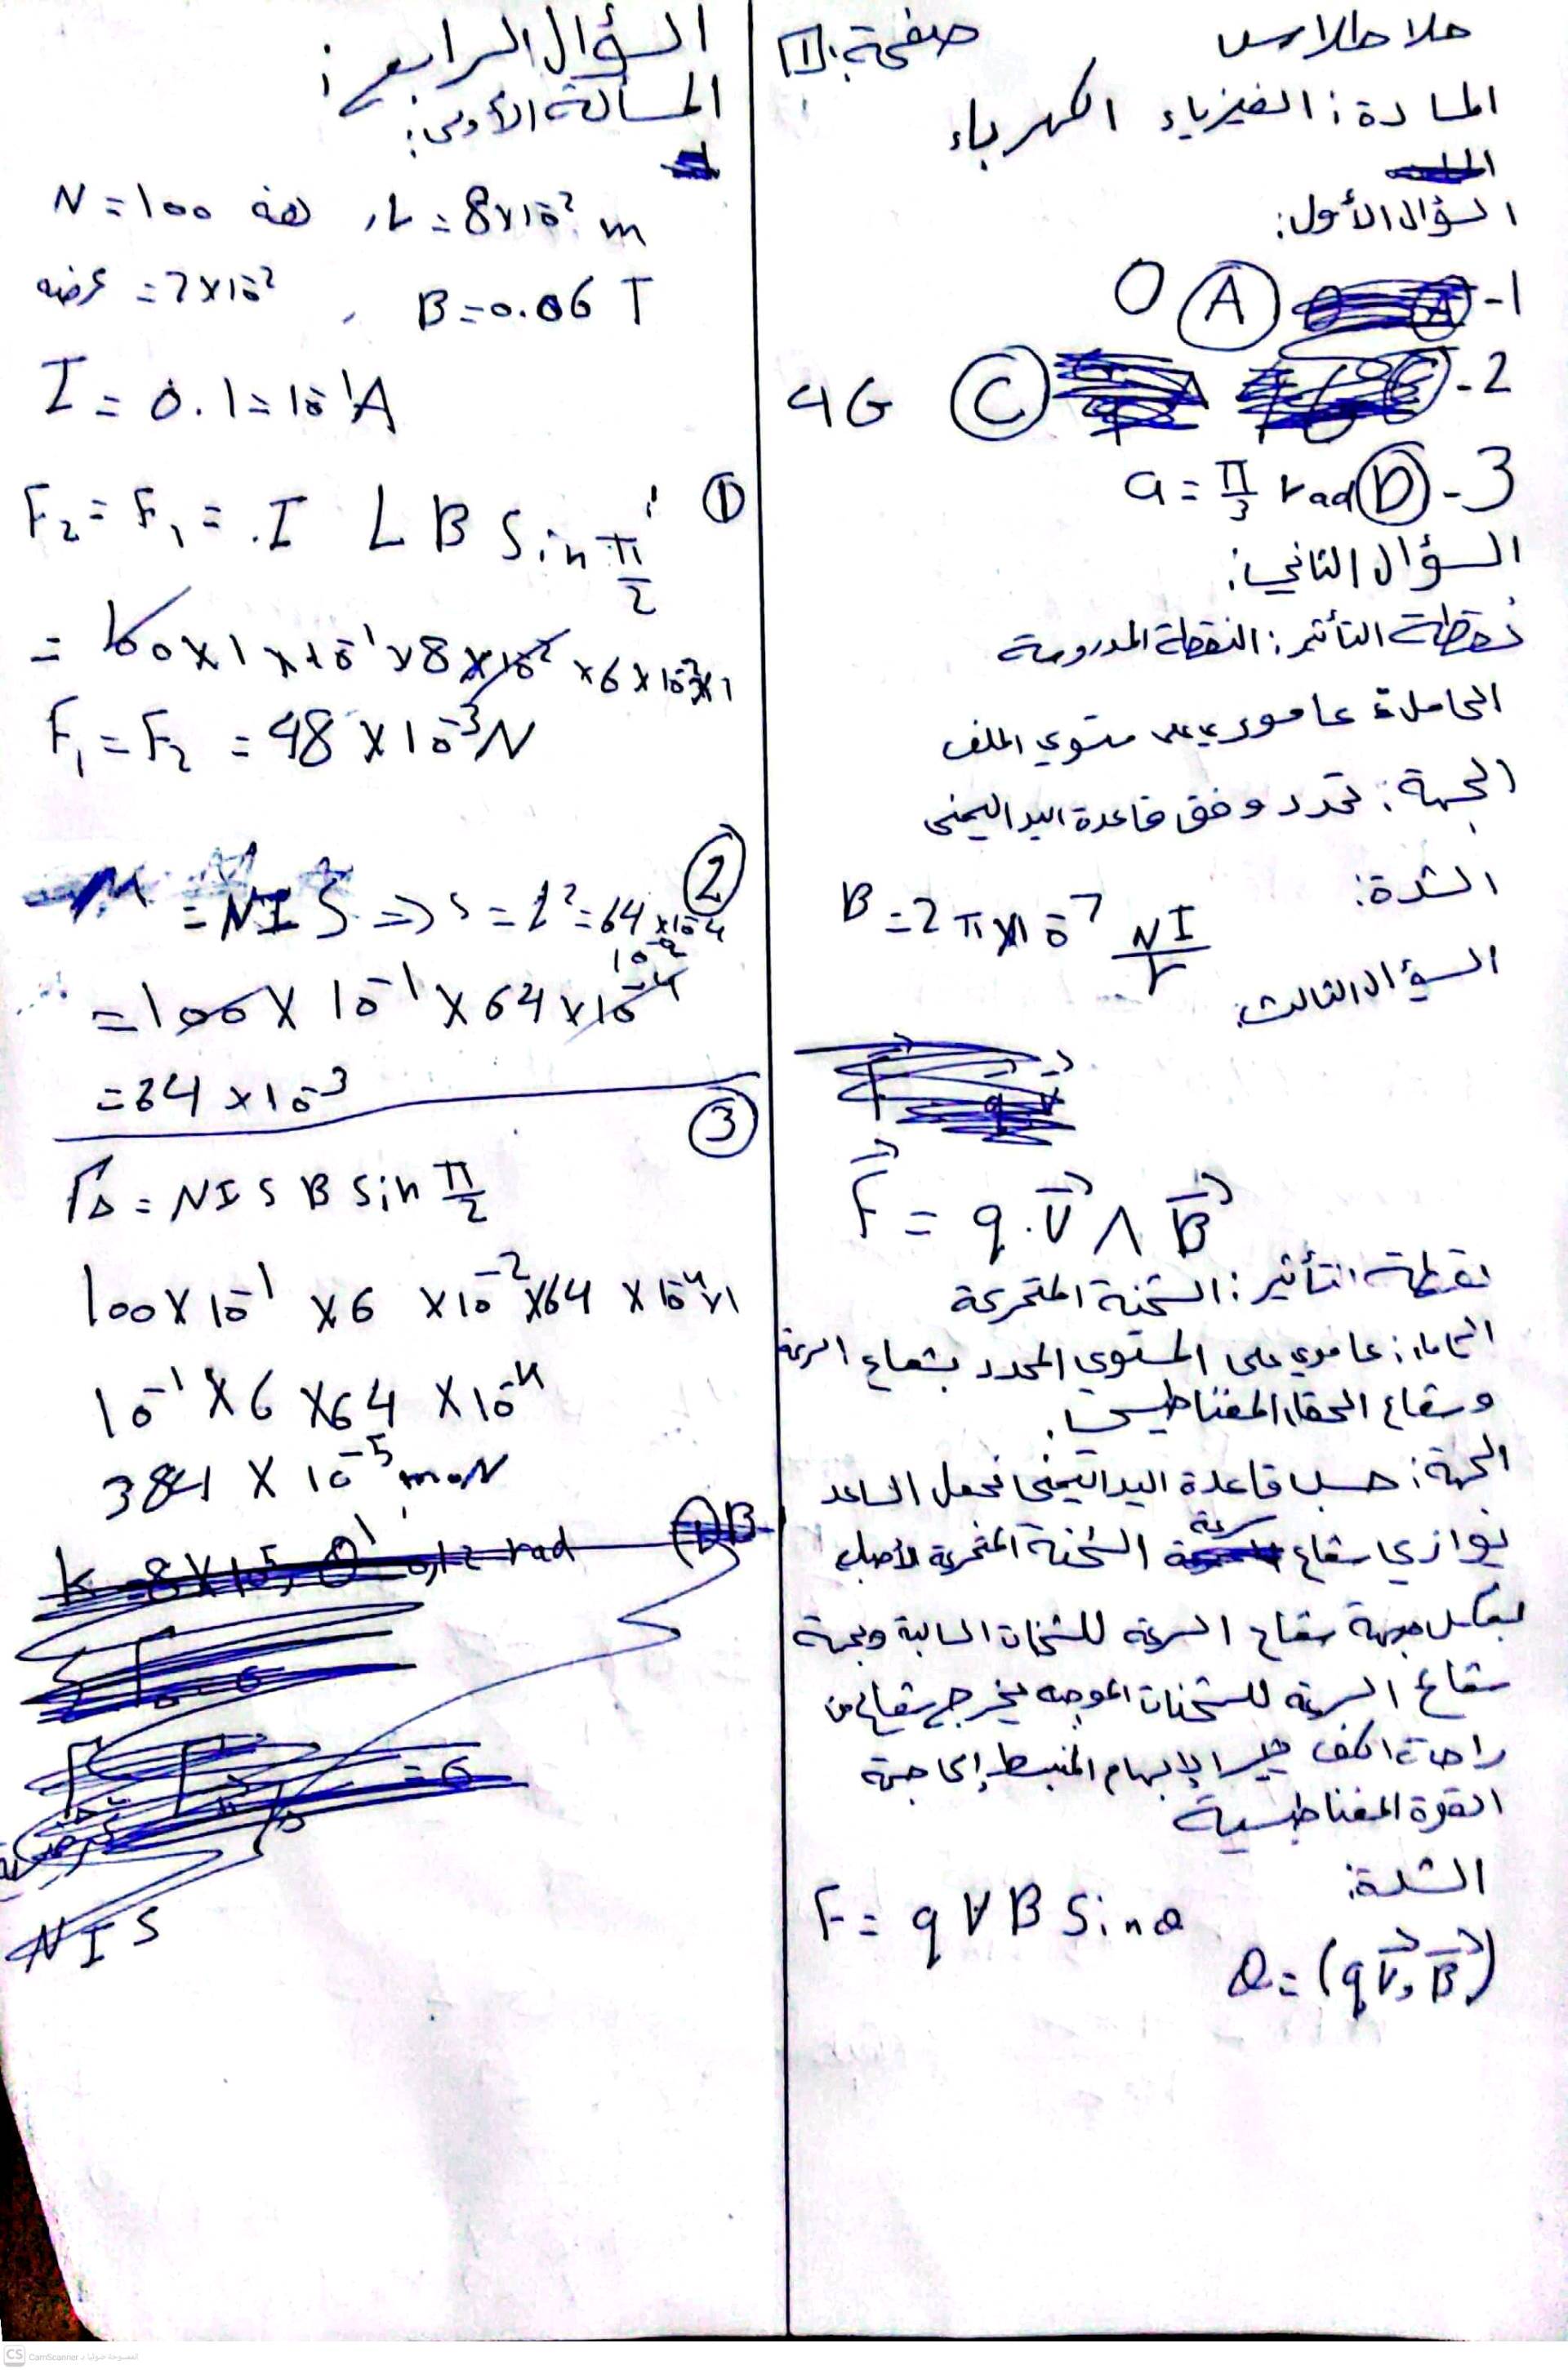 حلا طلاس
صفحة: 1
المادة: الفيزياء الكهرباء
السؤال الأول:
1- A 0
2- C 4G
3- D a = π/3 rad
السؤال الثاني:
نقطة التأثير: النقطة المدروسة
الحامل: عامودي على مستوي الملف
الجهة: تحدد وفق قاعدة اليد اليمنى
الشدة:
B = 2π×10⁻⁷ NI/r
السؤال الثالث:
F⃗ = q.V⃗ ∧ B⃗
نقطة التأثير: الشحنة المتحركة
الحامل: عامودي على المستوي المحدد بشعاع السرعة
وشعاع الحقل المغناطيسي.
الجهة: حسب قاعدة اليد اليمنى نجعل الساعد
يوازي شعاع سرعة الشحنة المتحركة الأصابع
بعكس جهة شعاع السرعة للشحنات السالبة وبجهة
شعاع السرعة للشحنات الموجبه يخرج شعاع من
راحة الكف يشير الإبهام المنبسط إلى جهة
القوة المغناطيسية
الشدة:
F = qVB Sin θ
θ = (qV⃗, B⃗)
السؤال الرابع:
المسألة الأولى:
N = 100 لفة , L = 8×10⁻² m
عرضه = 2×10⁻² , B = 0.06 T
I = 0.1 = 10⁻¹A
①
F₂ = F₁ = I L B Sin π/2
= 100×1×10⁻¹×8×10⁻²×6×10⁻²×1
F₁ = F₂ = 48×10⁻³N
②
= NIS => s = L² = 64×10⁻⁴
= 100×10⁻¹×64×10⁻⁴
= 64×10⁻³
③
ΓΔ = NIS B Sin π/2
100×10⁻¹×6×10⁻²×64×10⁻⁴×1
10⁻¹×6×64×10⁻⁴
384×10⁻⁵ m.N
k = 8×10⁻⁵, θ' 0,12 rad
NIS
CS CamScanner الممسوحة ضوئيا بـ